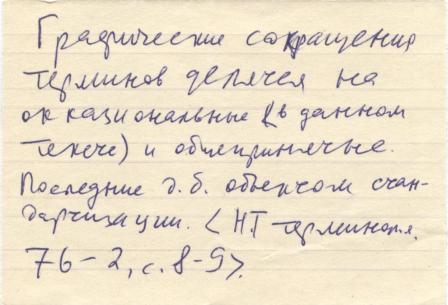 Графические сокращения
терминов делятся на
окказиональные (в данном
тексте) и общепринятые.
Последние д.б. объектом стан-
дартизации. <НТ терминол.
76-2, с. 8-9>.